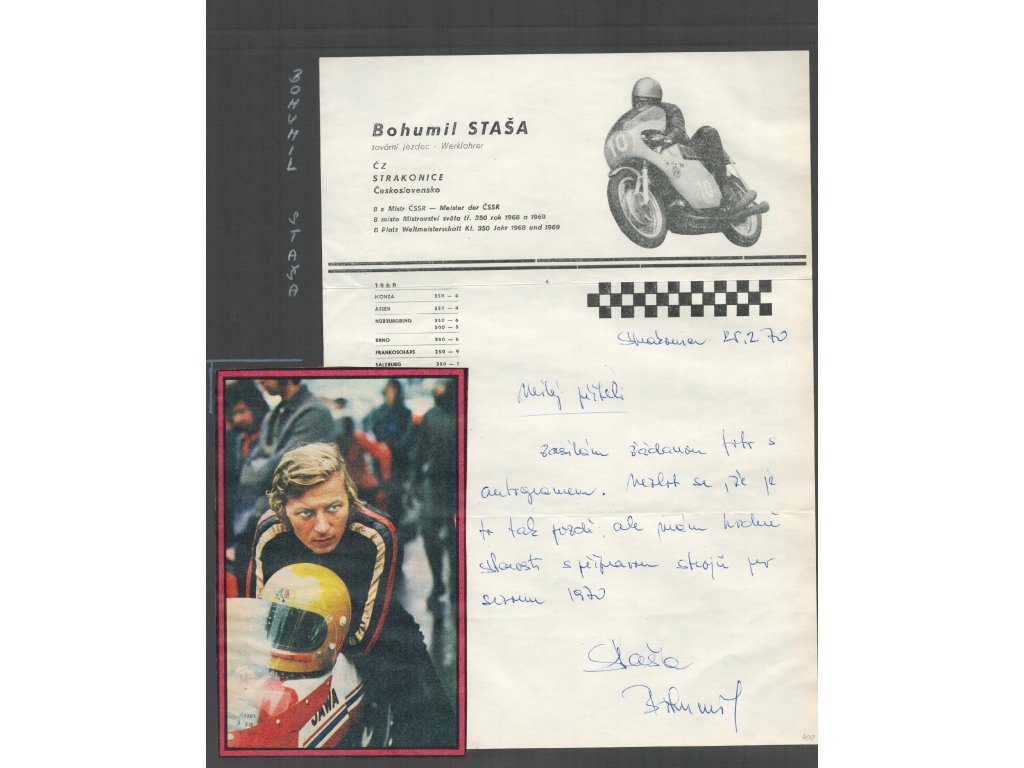 BOHUMIL STAŠA
Bohumil STAŠA
tovární jezdec - Werkfahrer
ČZ
STRAKONICE
Československo
8 x Mistr ČSSR — Meister der ČSSR
8 místo Mistrovství světa tř. 350 rok 1968 a 1969
8 Platz Weltmeisterschaft Kl. 350 Jahr 1968 und 1969
10
10
1968
MONZA 350 — 4
ASSEN 350 — 4
NÜRBURGRING 350 — 6
500 — 5
BRNO 350 — 6
FRANKOSCHAPS 250 — 9
SALZBURG 350 — 1
Strakonice 25.2.70
Milý příteli
zasílám žádanou foto s
autogramem. Nezlob se, že je
to tak pozdě, ale mám hodně
starostí s přípravou strojů pro
sezonu 1970
Staša
Bohumil
JAWA
408